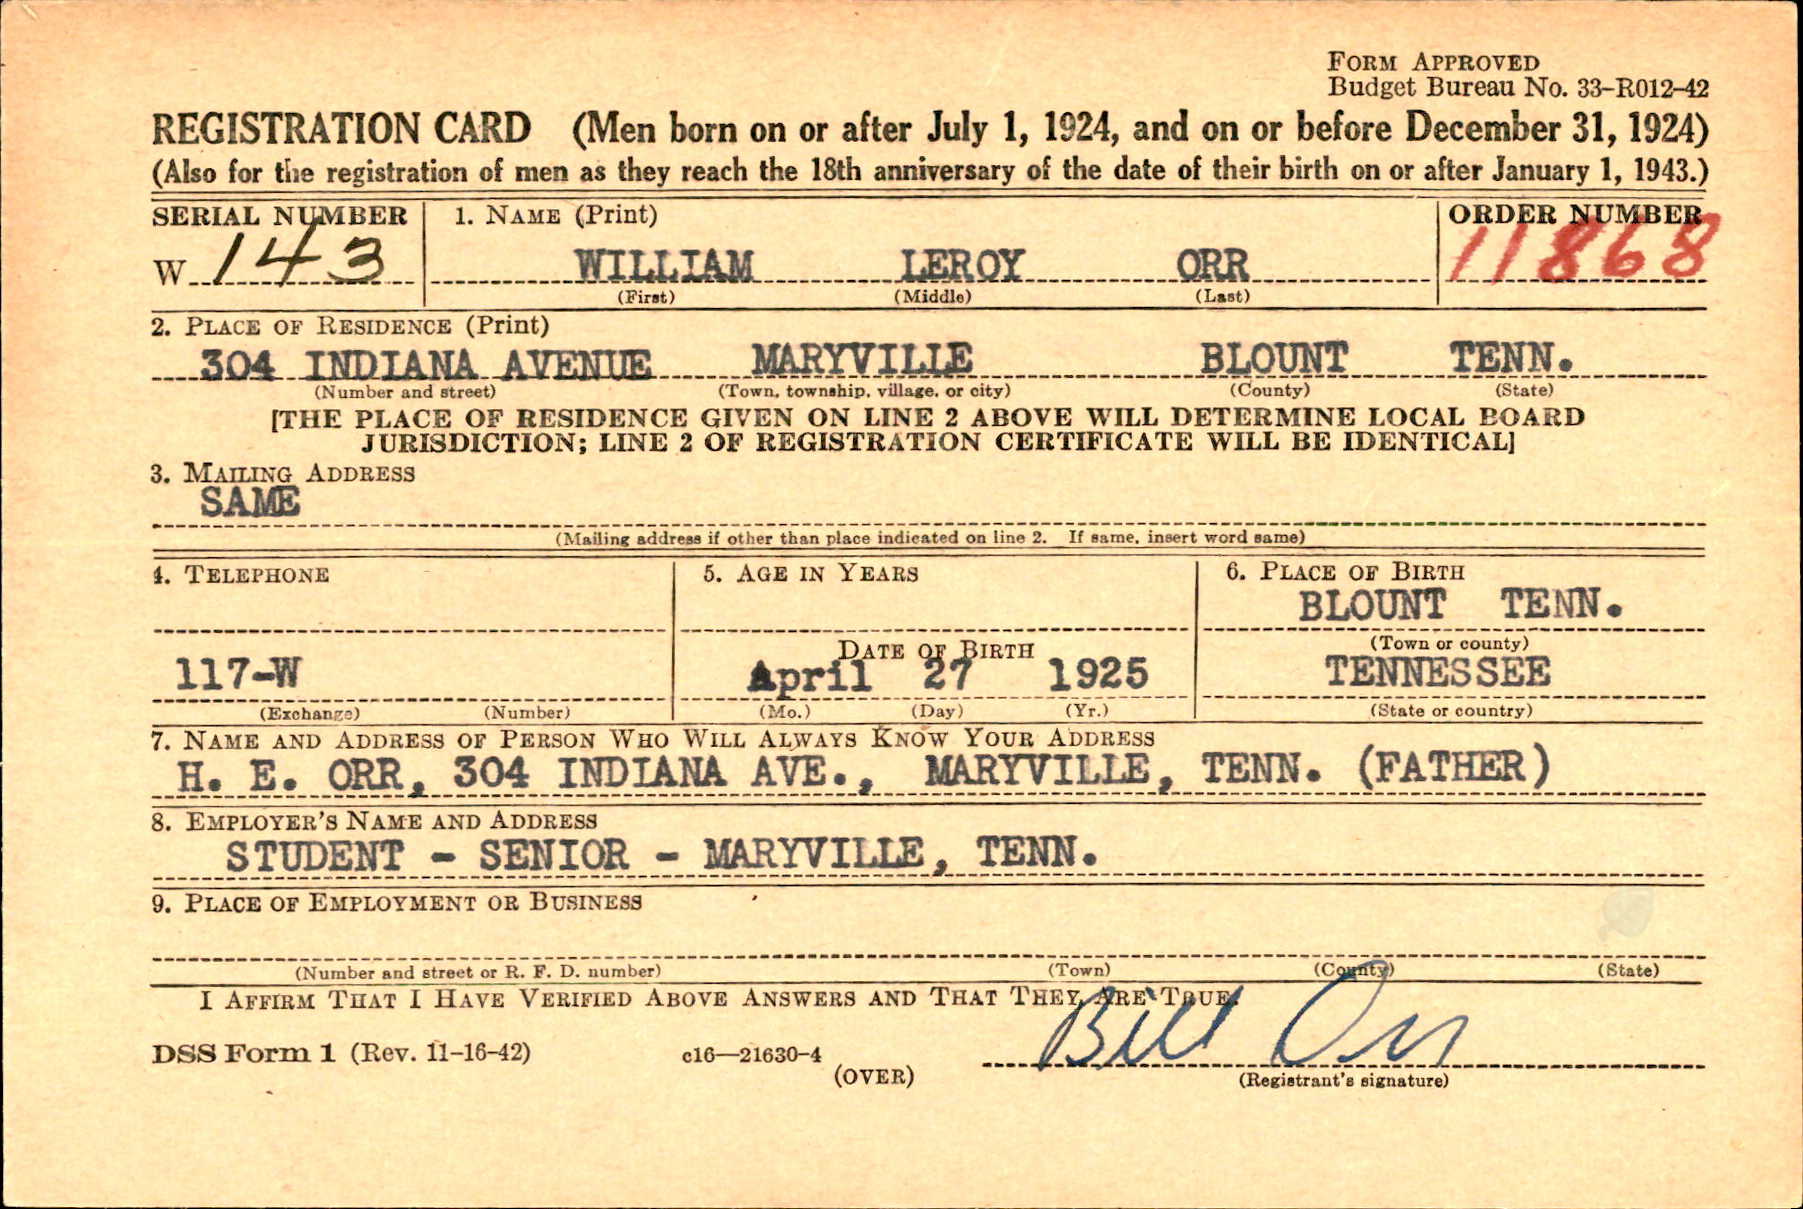 FORM APPROVED
Budget Bureau No. 33-R012-42
REGISTRATION CARD (Men born on or after July 1, 1924, and on or before December 31, 1924)
(Also for the registration of men as they reach the 18th anniversary of the date of their birth on or after January 1, 1943.)
SERIAL NUMBER 1. NAME (Print) ORDER NUMBER
W 143 WILLIAM LEROY ORR 11868
(First) (Middle) (Last)
2. PLACE OF RESIDENCE (Print)
304 INDIANA AVENUE MARYVILLE BLOUNT TENN.
(Number and street) (Town, township, village, or city) (County) (State)
[THE PLACE OF RESIDENCE GIVEN ON LINE 2 ABOVE WILL DETERMINE LOCAL BOARD
JURISDICTION; LINE 2 OF REGISTRATION CERTIFICATE WILL BE IDENTICAL]
3. MAILING ADDRESS
SAME
(Mailing address if other than place indicated on line 2. If same, insert word same)
4. TELEPHONE 5. AGE IN YEARS 6. PLACE OF BIRTH
BLOUNT TENN.
DATE OF BIRTH (Town or county)
117-W April 27 1925 TENNESSEE
(Exchange) (Number) (Mo.) (Day) (Yr.) (State or country)
7. NAME AND ADDRESS OF PERSON WHO WILL ALWAYS KNOW YOUR ADDRESS
H. E. ORR, 304 INDIANA AVE., MARYVILLE, TENN. (FATHER)
8. EMPLOYER'S NAME AND ADDRESS
STUDENT - SENIOR - MARYVILLE, TENN.
9. PLACE OF EMPLOYMENT OR BUSINESS
(Number and street or R. F. D. number) (Town) (County) (State)
I AFFIRM THAT I HAVE VERIFIED ABOVE ANSWERS AND THAT THEY ARE TRUE.
DSS Form 1 (Rev. 11-16-42) c16—21630-4 Bill Orr
(OVER) (Registrant's signature)